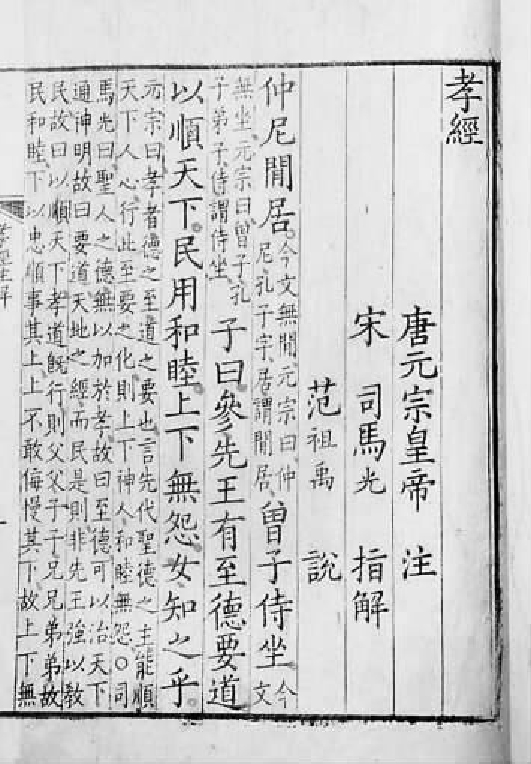 孝經
唐元宗皇帝 注
宋 司馬光 指解
范祖禹 說
仲尼閒居。今文無閒元宗曰仲
尼孔子字居謂閒居。曾子侍坐今文
無坐元宗曰曾子孔
子弟子侍謂侍坐。子曰參先王有至德要道
以順天下。民用和睦。上下無怨。女知之乎。
元宗曰孝者德之至道之要也言先代聖德之主能順
天下人心行此至要之化則上下神人和睦無怨○司
馬光曰聖人之德無以加於孝故曰至德可以治天下
通神明故曰要道天地之經而民是則非先王強以教
民故曰以順天下孝道旣行則父父子子兄兄弟弟故
民和睦下以忠順事其上上不敢侮慢其下故上下無
孝經指解